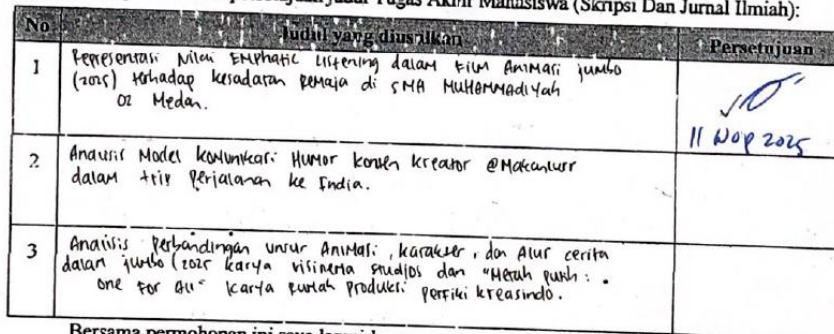 Tugas Akhir Mahasiswa (Skripsi Dan Jurnal Ilmiah):
No Judul yang diusulkan Persetujuan
1 Representasi Nilai EMphatic Listening dalam Film Animasi jumbo
(2025) terhadap kesadaran remaja di SMA MUHAMMADIYAH
02 Medan.
11 Nop 2025
2 Analisis Model komunikasi Humor konten kreator @Makanlurr
dalam trip Perjalanan ke India.
3 Analisis Perbandingan unsur Animasi, karakter, dan Alur cerita
dalam jumbo (2025 karya visinema studios dan "Merah putih:
one For All" karya
produksi perfiki kreasindo.
Bersama permohonan ini saya